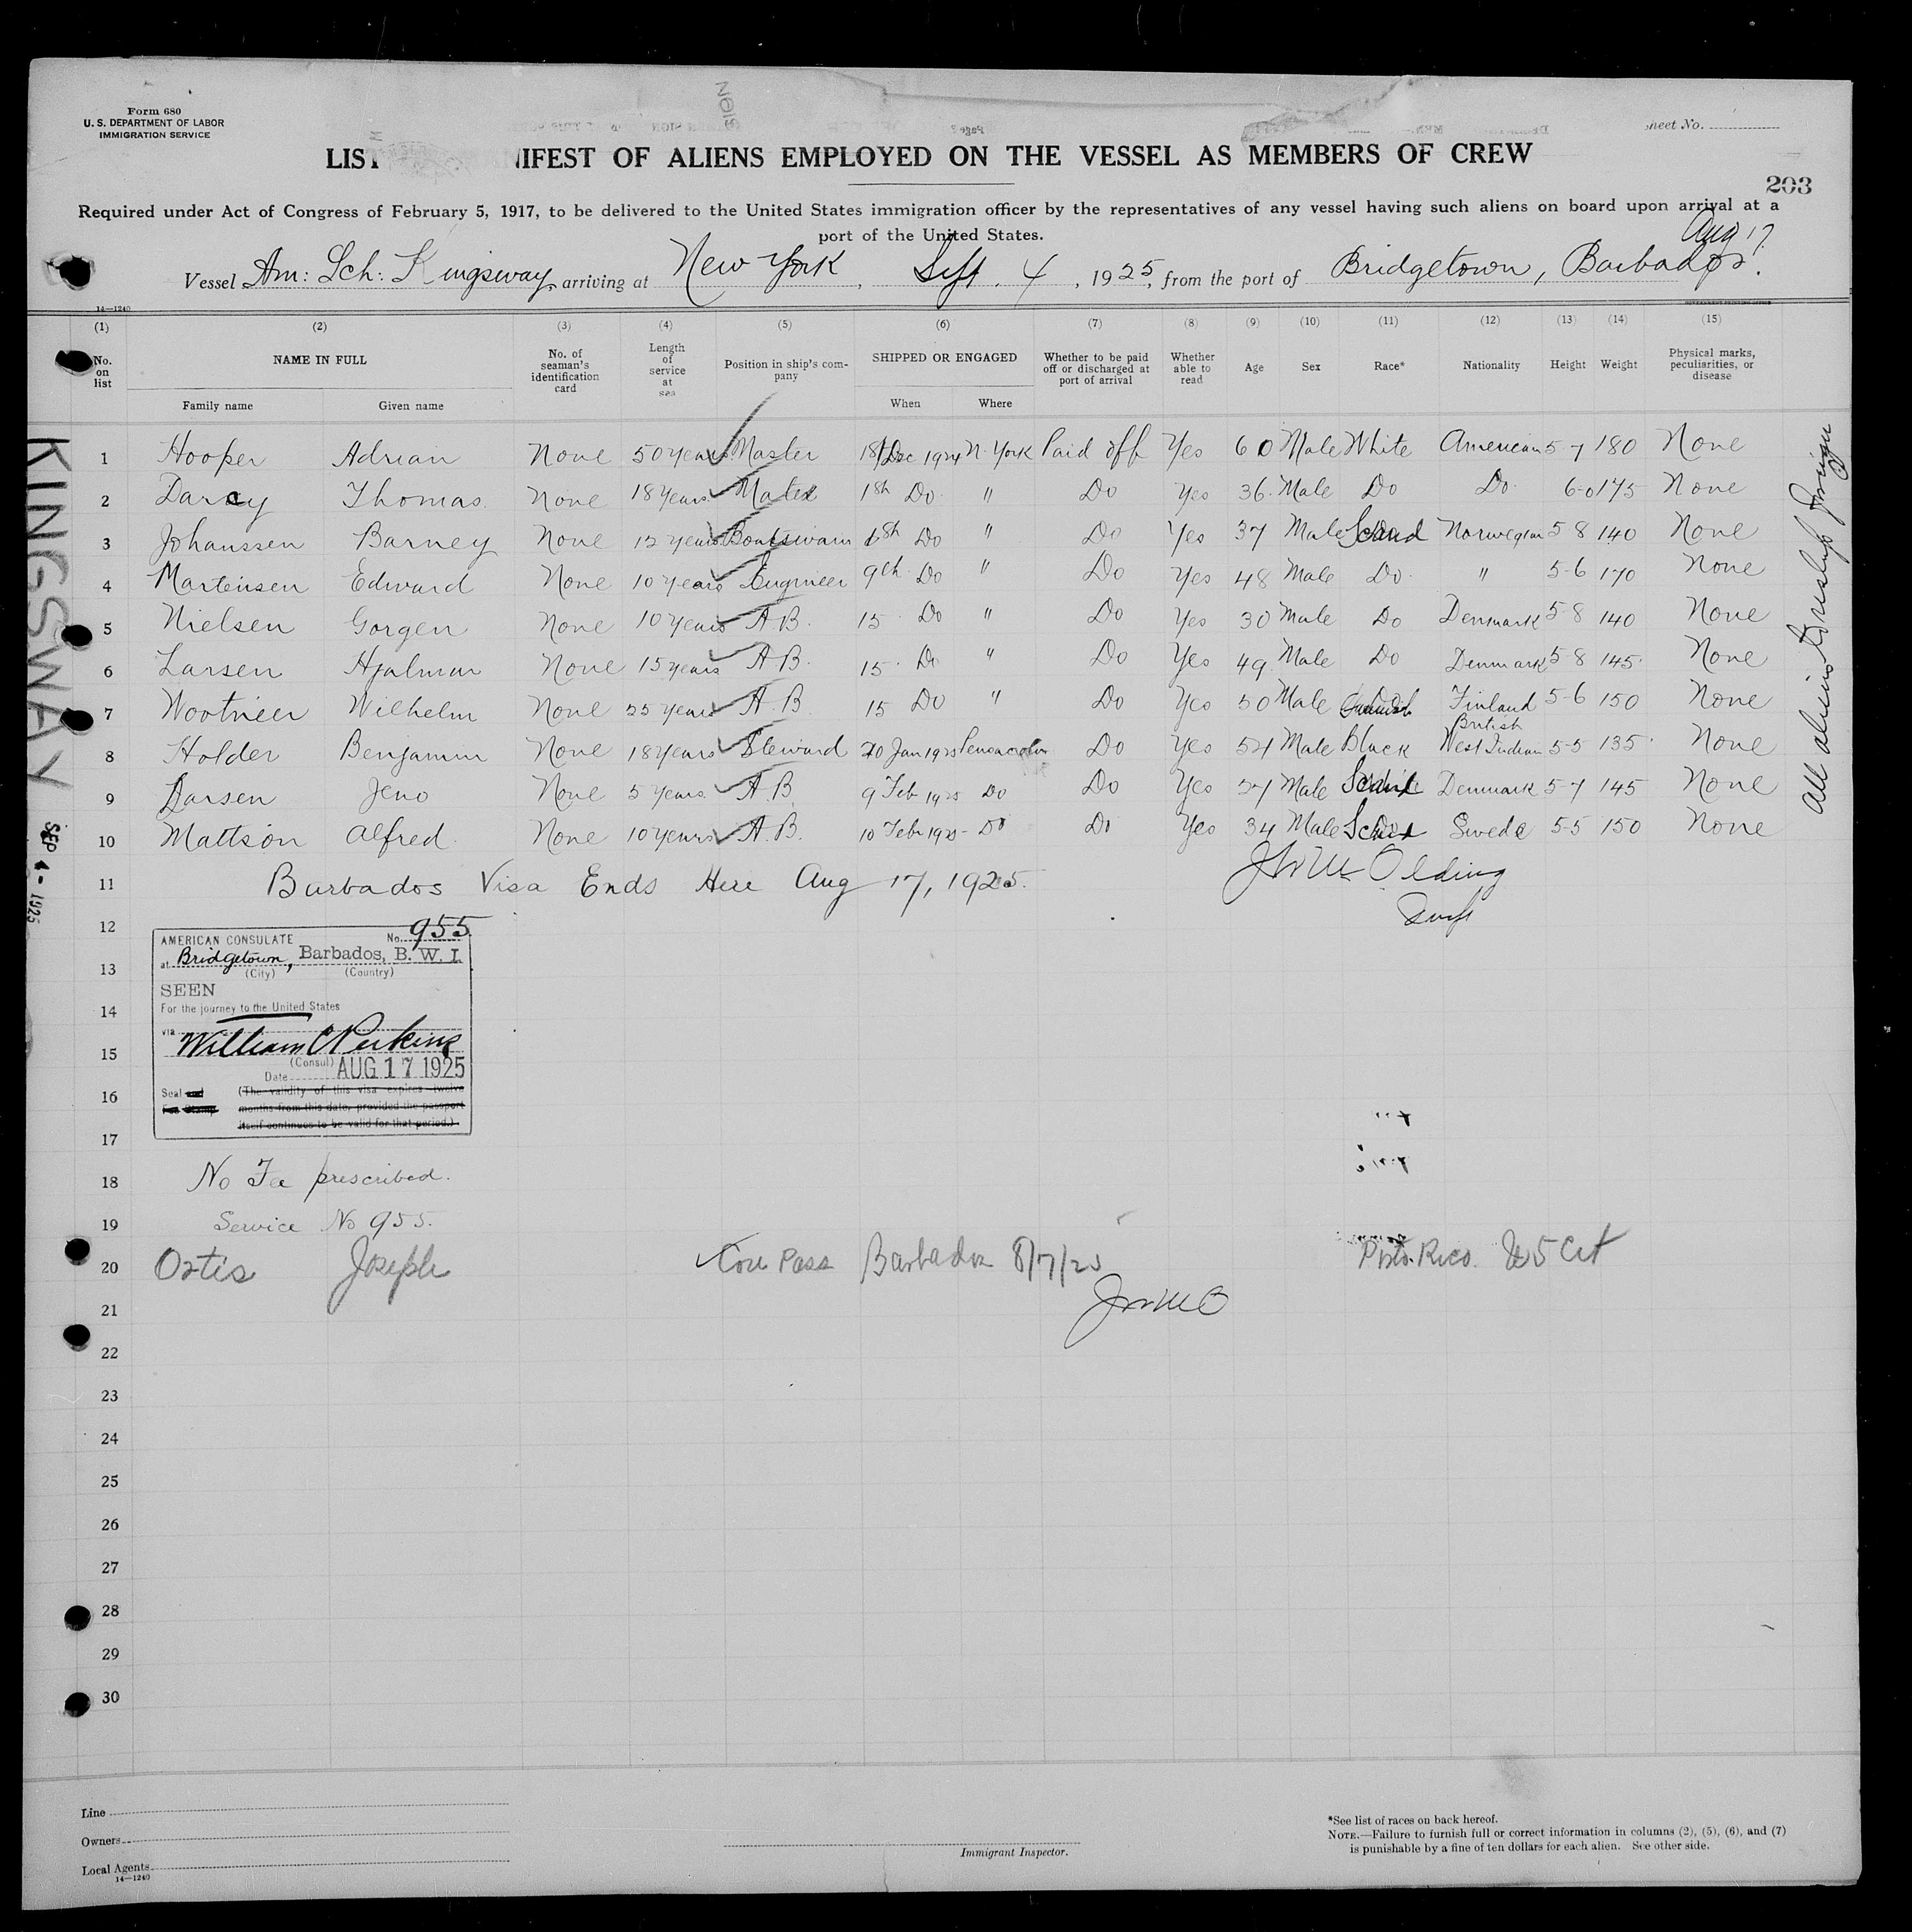 Form 680
U. S. DEPARTMENT OF LABOR
IMMIGRATION SERVICE
SIGN
Sheet No.
LIST MANIFEST OF ALIENS EMPLOYED ON THE VESSEL AS MEMBERS OF CREW
203
Required under Act of Congress of February 5, 1917, to be delivered to the United States immigration officer by the representatives of any vessel having such aliens on board upon arrival at a
port of the United States.
Aug 17
Vessel Am: Sch: Kingsway, arriving at New York, Sept. 4, 1925, from the port of Bridgetown, Barbados.
14—1240
(1) (2) (3) (4) (5) (6) (7) (8) (9) (10) (11) (12) (13) (14) (15)
No. on list NAME IN FULL No. of seaman's identification card Length of service at sea Position in ship's company SHIPPED OR ENGAGED Whether to be paid off or discharged at port of arrival Whether able to read Age Sex Race* Nationality Height Weight Physical marks, peculiarities, or disease
Family name Given name When Where
1 Hooper Adrian None 50 years Master 18 Dec 1924 N. York Paid off Yes 60 Male White American 5-7 180 None
2 Darcy Thomas None 18 years Mate 1st Do " Do Yes 36 Male Do Do 6-0 175 None
3 Johanssen Barney None 12 years Boatswain 8th Do " Do Yes 37 Male Scand Norwegian 5 8 140 None
4 Martensen Edward None 10 years Engineer 9th Do " Do Yes 48 Male Do " 5-6 170 None
5 Nielsen Gorgen None 10 years A.B. 15 Do " Do Yes 30 Male Do Denmark 5-8 140 None
6 Larsen Hjalmar None 15 years A.B. 15 Do " Do Yes 49 Male Do Denmark 5-8 145 None
7 Wootneer Wilhelm None 25 years A.B. 15 Do " Do Yes 50 Male Finland 5-6 150 None
8 Holder Benjamin None 18 years Steward 20 Jan 1925 Pensacola Do Yes 54 Male Black British West Indian 5-5 135 None
9 Larsen Jeno None 5 years A.B. 9 Feb 1925 Do Do Yes 27 Male Scand Denmark 5-7 145 None
10 Mattson Alfred None 10 years A.B. 10 Feb 1925 Do Do Yes 34 Male Scand Swede 5-5 150 None
11 Barbados Visa Ends Here Aug 17, 1925.
Olding
Insp
12
13
14
15
16
17
AMERICAN CONSULATE No. 955
at Bridgetown, Barbados, B. W. I.
(City) (Country)
SEEN
For the journey to the United States
via
William C Perkins
(Consul)
Date AUG 17 1925
Seal and (The validity of this visa expires twelve
Fee Stamp months from this date, provided the passport
itself continues to be valid for that period.)
18 No Fee prescribed.
19 Service No 955.
20 Ortis Joseph Con Pass Barbados 8/17/25 Porto Rico. US Cit
JWMcO
21
22
23
24
25
26
27
28
29
30
KINGSWAY
SEP 4- 1925
All aliens to reship foreign
Line
Owners
Local Agents
14—1240
Immigrant Inspector.
*See list of races on back hereof.
NOTE.—Failure to furnish full or correct information in columns (2), (5), (6), and (7)
is punishable by a fine of ten dollars for each alien. See other side.